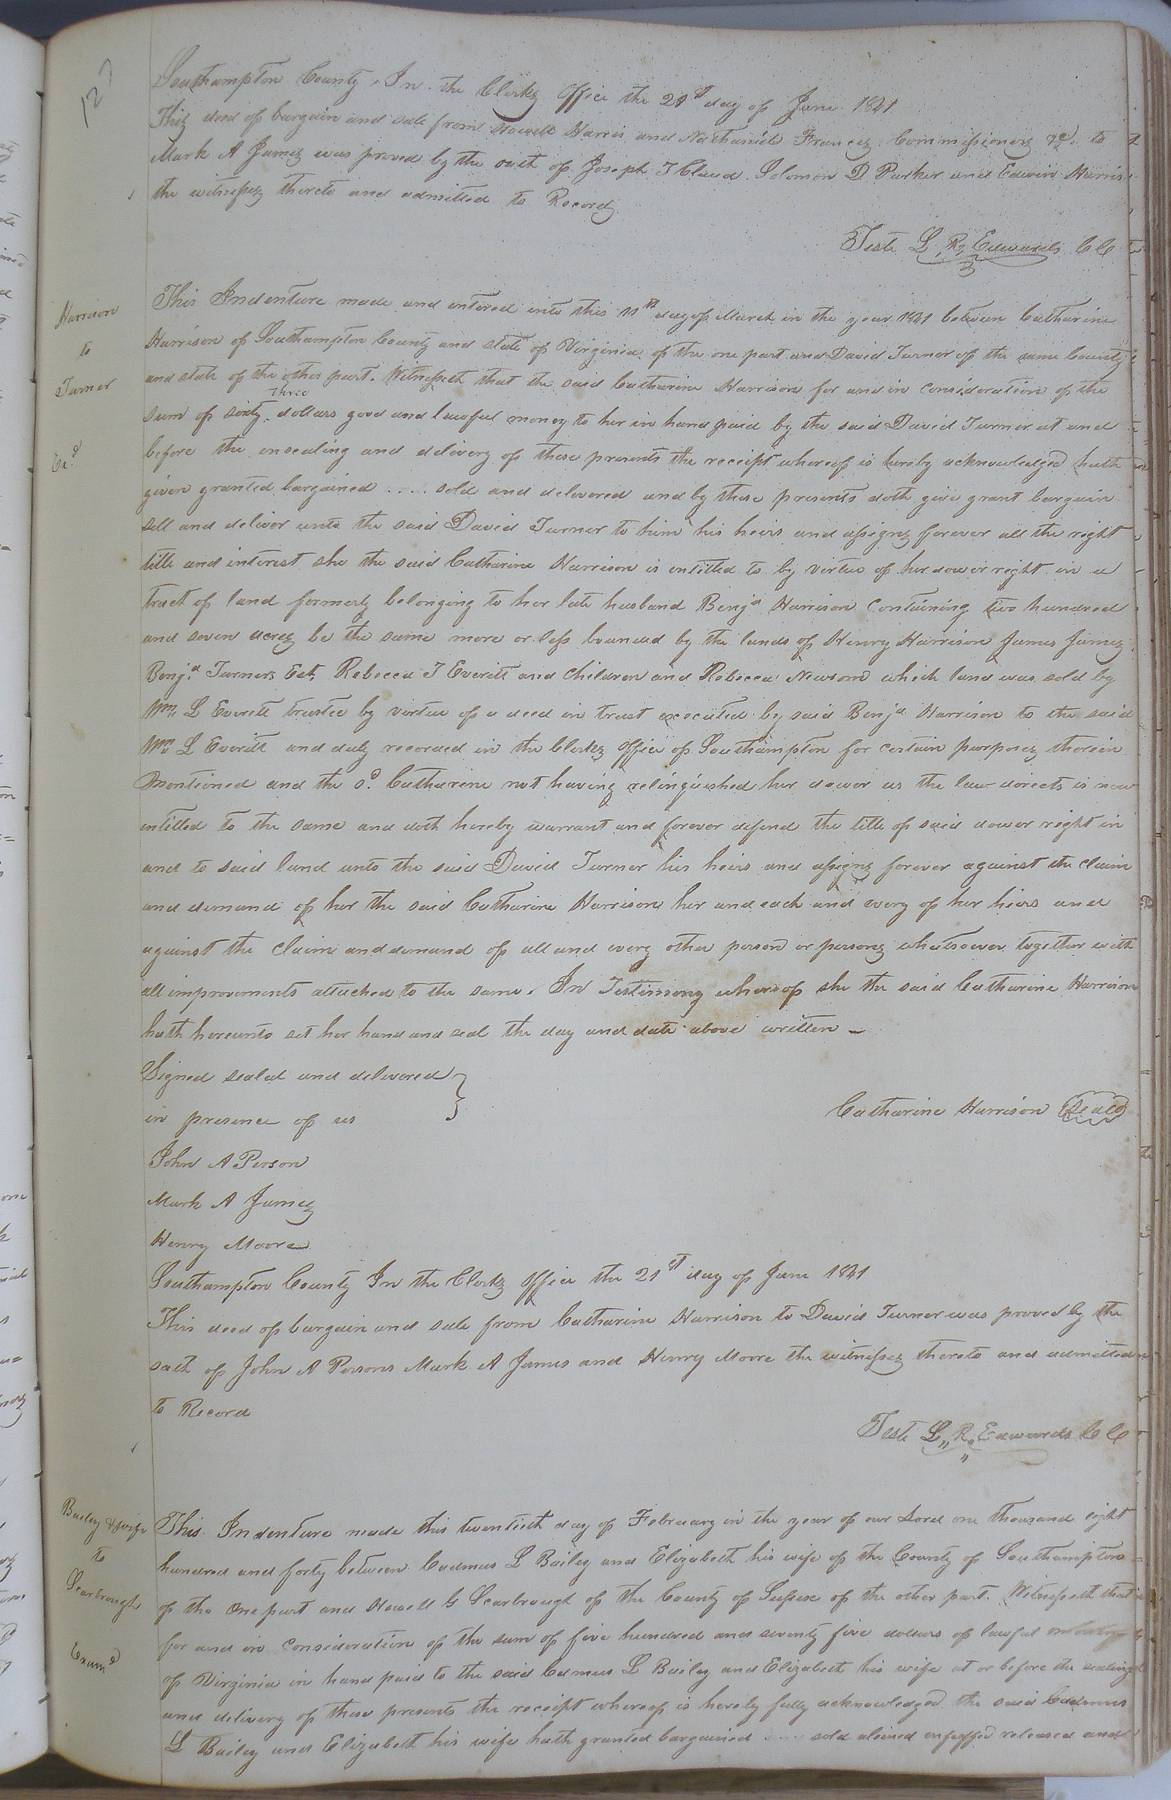 127
Southampton County. In the Clerks Office the 21st day of June 1841
This deed of bargain and sale from Howell Harris and Nathaniel Francis Commissioners &c. to
Mark A James was proved by the oath of Joseph T Claud Solomon D Parker and Edwin Harris
the witnesses thereto and admitted to Record
Teste L. R. Edwards CC
Harrison
to
Turner
Ex.d
This Indenture made and entered into this 11th day of March in the year 1841 between Catharine
Harrison of Southampton County and state of Virginia of the one part and David Turner of the same County
and state of the other part. Witnesseth that the said Catharine Harrison for and in consideration of the
sum of sixty three dollars good and lawful money to her in hand paid by the said David Turner at and
before the ensealing and delivery of these presents the receipt whereof is hereby acknowledged hath
given granted bargained .... sold and delivered and by these presents doth give grant bargain
sell and deliver unto the said David Turner to him his heirs and assigns forever all the right
title and interest she the said Catharine Harrison is entitled to by virtue of her dower right in a
tract of land formerly belonging to her late husband Benja Harrison containing two hundred
and seven acres be the same more or less bounded by the lands of Henry Harrison James James
Benja. Turners Est, Rebecca T Everitt and children and Rebecca Newsom which land was sold by
Wm. L Everitt trustee by virtue of a deed in trust executed by said Benja Harrison to the said
Wm. L Everitt and duly recorded in the Clerks Office of Southampton for certain purposes therein
mentioned and the sd. Catharine not having relinquished her dower as the law directs is now
intitled to the same and doth hereby warrant and forever defend the title of said dower right in
and to said land unto the said David Turner his heirs and assigns forever against the claim
and demand of her the said Catharine Harrison her and each and every of her heirs and
against the claim and demand of all and every other person or persons whatsoever together with
all improvements attached to the same. In Testimony whereof she the said Catharine Harrison
hath hereunto set her hand and seal the day and date above written -
Signed sealed and delivered }
in presence of us
Catharine Harrison Seal
John A Person
Mark A James
Henry Moore
Southampton County In the Clerks Office the 21st day of June 1841
This deed of bargain and sale from Catharine Harrison to David Turner was proved by the
oath of John A Persons Mark A James and Henry Moore the witnesses thereto and admitted
to Record
Teste L,, R,, Edwards CC
Bailey & wife
to
Scarbrough
Exam.d
This Indenture made this twentieth day of February in the year of our Lord one thousand eight
hundred and forty between Cadmus L Bailey and Elizabeth his wife of the County of Southampton
of the one part and Howell G Scarbrough of the County of Sussex of the other part. Witnesseth that
for and in consideration of the sum of five hundred and seventy five dollars of lawful money
of Virginia in hand paid to the said Cadmus L Bailey and Elizabeth his wife at or before the sealing
and delivery of these presents the receipt whereof is hereby fully acknowledged the said Cadmus
L Bailey and Elizabeth his wife hath granted bargained .... sold aliened enfeoffed released and